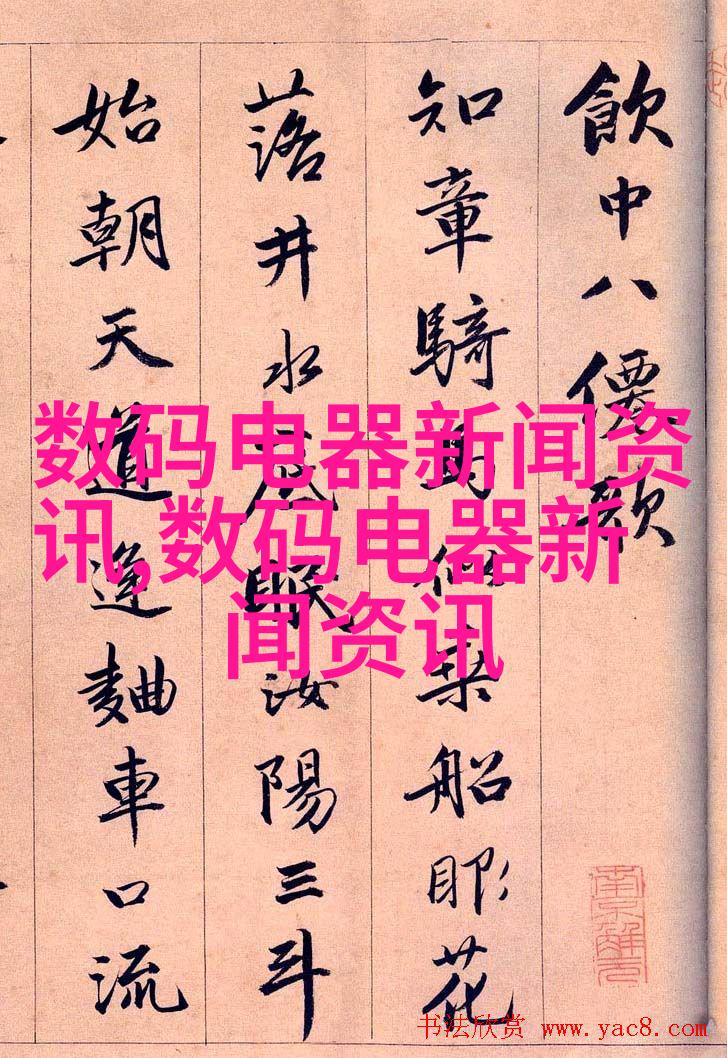 飲中八僊歌
知章騎馬似乘船眼花
落井水底眠汝陽三斗
始朝天道逢麯車口流
数码电器新闻资
讯,数码电器新
闻资讯
南京解元
书法欣赏 www.yac8.com